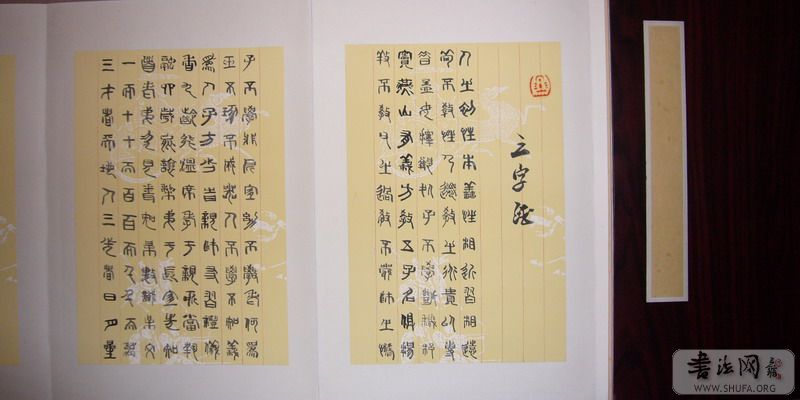 三字經
人之初性本善性相近習相遠
苟不教性乃遷教之道貴以專
昔孟母擇鄰處子不學斷機杼
竇燕山有義方教五子名俱揚
養不教父之過教不嚴師之惰
子不學非所宜幼不學老何為
玉不琢不成器人不學不知義
為人子方少時親師友習禮儀
香九齡能溫席孝于親所當執
融四歲能讓梨弟于長宜先知
首孝弟次見聞知某數識某文
一而十十而百百而千千而萬
三才者天地人三光者日月星
书法网
WWW.SHUFA.ORG